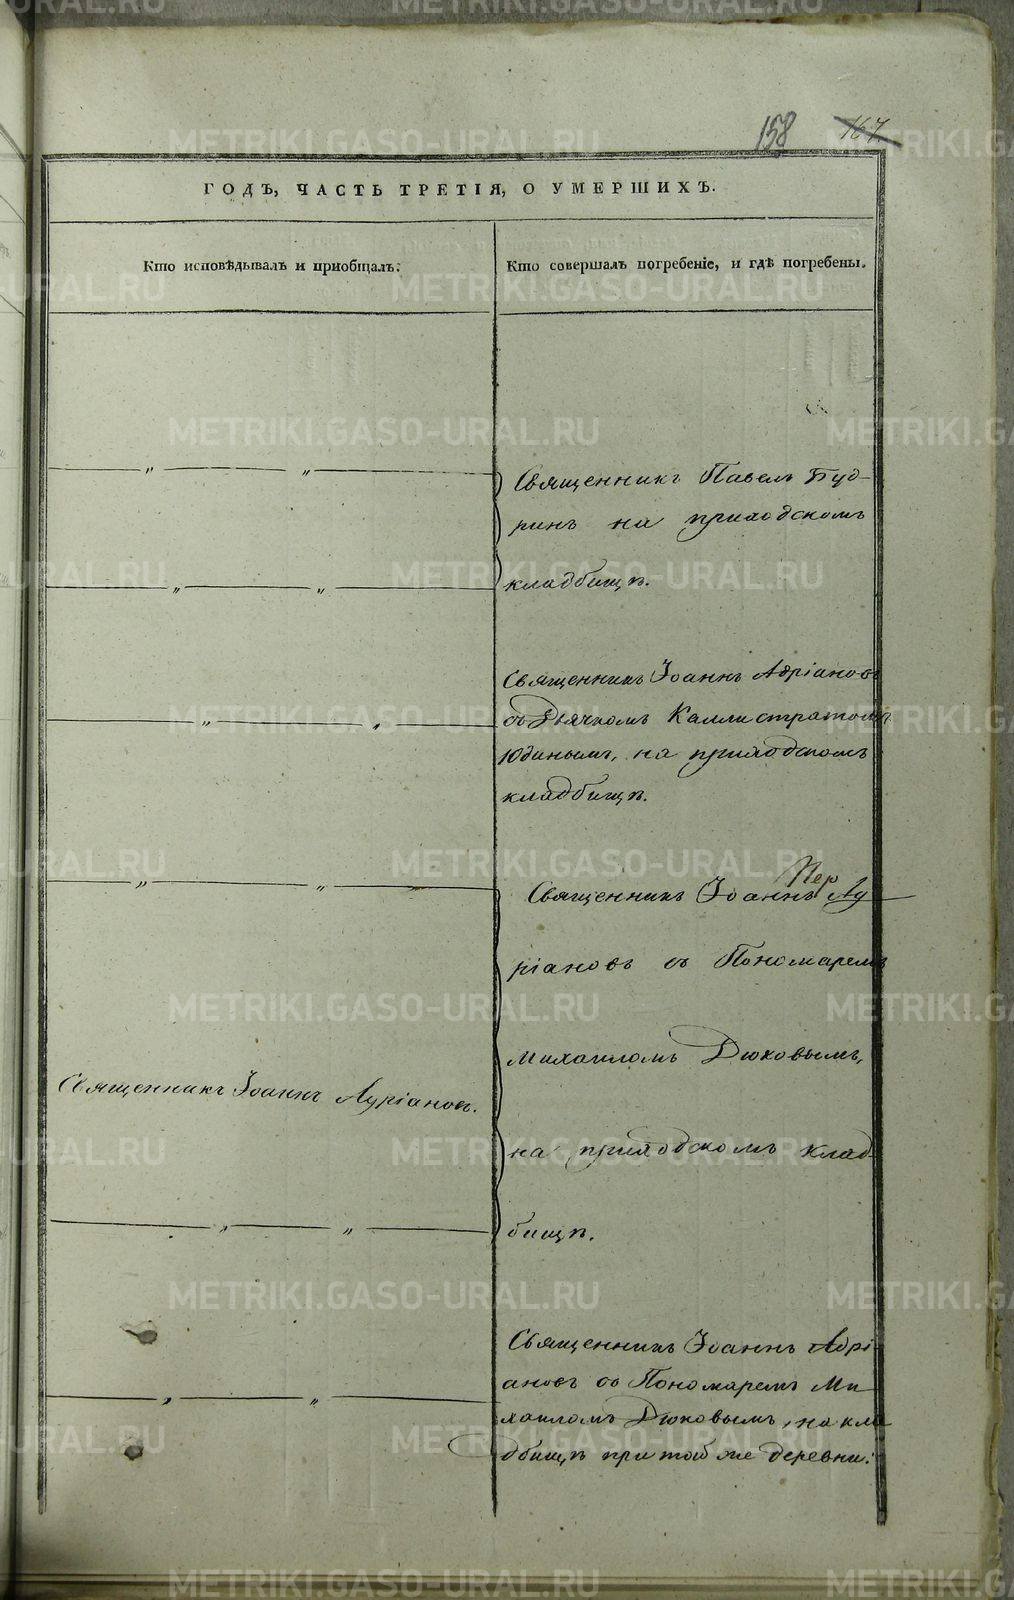 158 167
ГОДЪ, ЧАСТЬ ТРЕТІЯ, О УМЕРШИХЪ.
Кто исповѣдывалъ и пріобщалъ.
Кто совершалъ погребеніе, и гдѣ погребены.
Священникъ Павелъ Буд-
ринъ на приходскомъ
кладбищѣ.
Священникъ Іоаннъ Адріановъ
съ Дьячкомъ Каллистратомъ
Юдинымъ, на приходскомъ
кладбищѣ.
Священникъ Іоаннъ Ад
ріановъ съ Пономаремъ
Михаиломъ Дюковымъ,
Священникъ Іоаннъ Адріановъ.
на приходскомъ клад
бищѣ.
Священникъ Іоаннъ Адрі
ановъ съ Пономаремъ Ми
хаиломъ Дюковымъ, на кла
дбищѣ при той же деревни.
METRIKI.GASO-URAL.RU